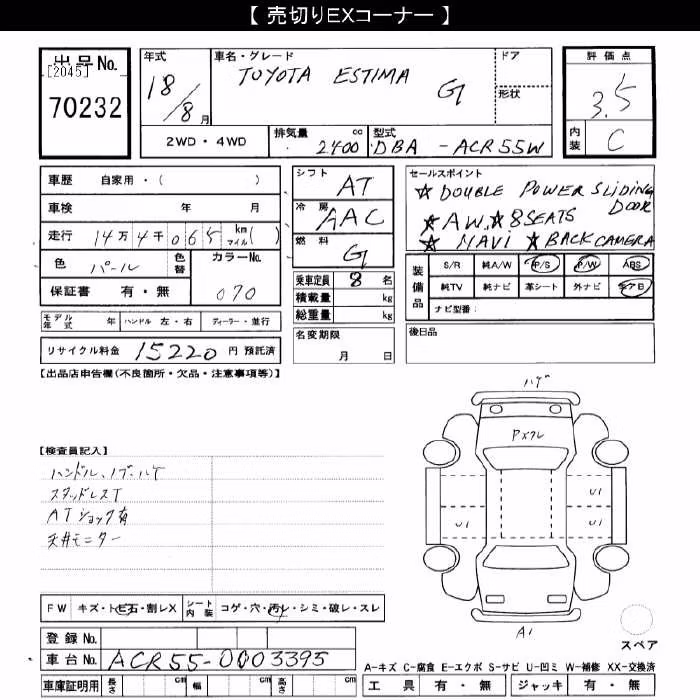 【 売切りEXコーナー 】
出品No.
[2045]
70232
年式
18/8月
車名・グレード
TOYOTA ESTIMA G
ドア
形状
評価点
3.5
内装 C
2WD・4WD
排気量 2400 cc
型式 DBA-ACR55W
車歴 自家用・( )
車検 年 月
走行 14万4千065 km マイル( )
色 パール 色替
カラーNo. 070
保証書 有・無
シフト AT
冷房 AAC
燃料 G
乗車定員 8 名
積載量 kg
総重量 kg
セールスポイント
☆ DOUBLE POWER SLIDING DOOR
☆ AW ☆ 8 SEATS
☆ NAVI ☆ BACK CAMERA
装備品
S/R 純A/W P/S P/W ABS
純TV 純ナビ 革シート 外ナビ エアB
ナビ型番:
モデル年式 年 ハンドル 左・右 ディーラー・並行
名変期限 月 日
後日品
リサイクル料金 15220 円 預託済
【出品店申告欄(不良箇所・欠品・注意事項等)】
ハゲ
Pメクレ
【検査員記入】
ハンドル、ノブハゲ
スタッドレスT
ATショック有
天井モニター
U1
U1
U1
U1
A1
FW キズ・トビ石・割レX
シート内装 コゲ・穴・汚レ・シミ・破レ・スレ
登録No.
車台No. ACR55-0003395
スペア
A-キズ C-腐食 E-エクボ S-サビ U-凹ミ W-補修 XX-交換済
車庫証明用 長さ cm 幅 cm 高さ cm
工具 有・無 ジャッキ 有・無